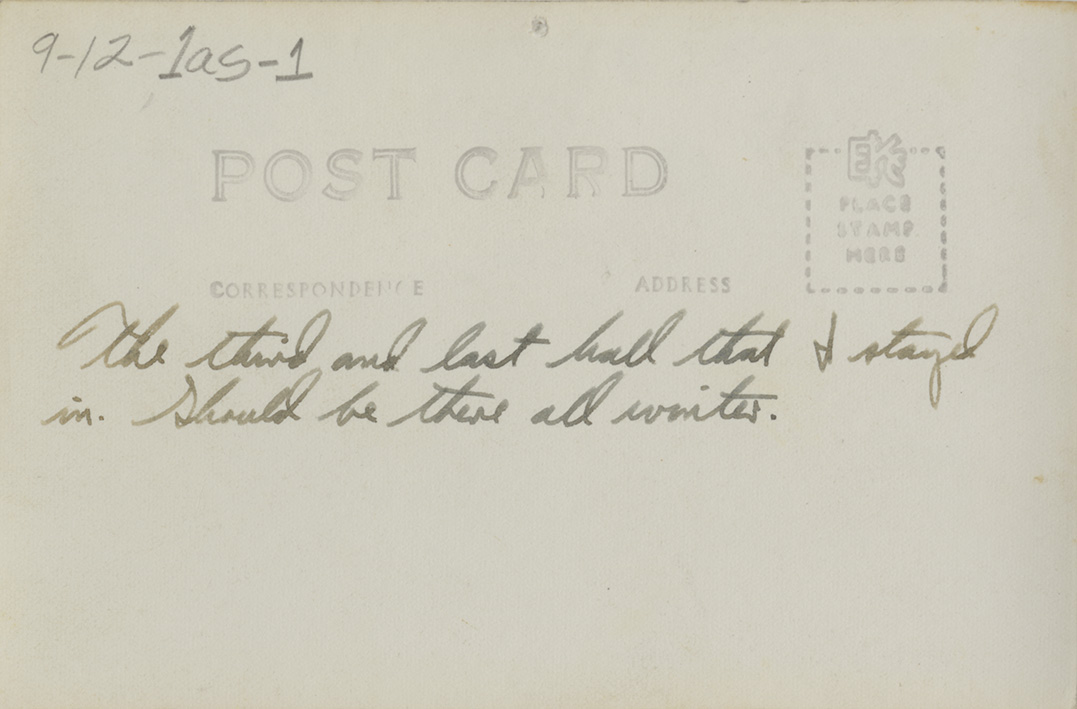 9-12-1as-1
POST CARD
EKC
PLACE
STAMP
HERE
CORRESPONDENCE
ADDRESS
The third and last hall that I stayd
in. Should be there all winter.